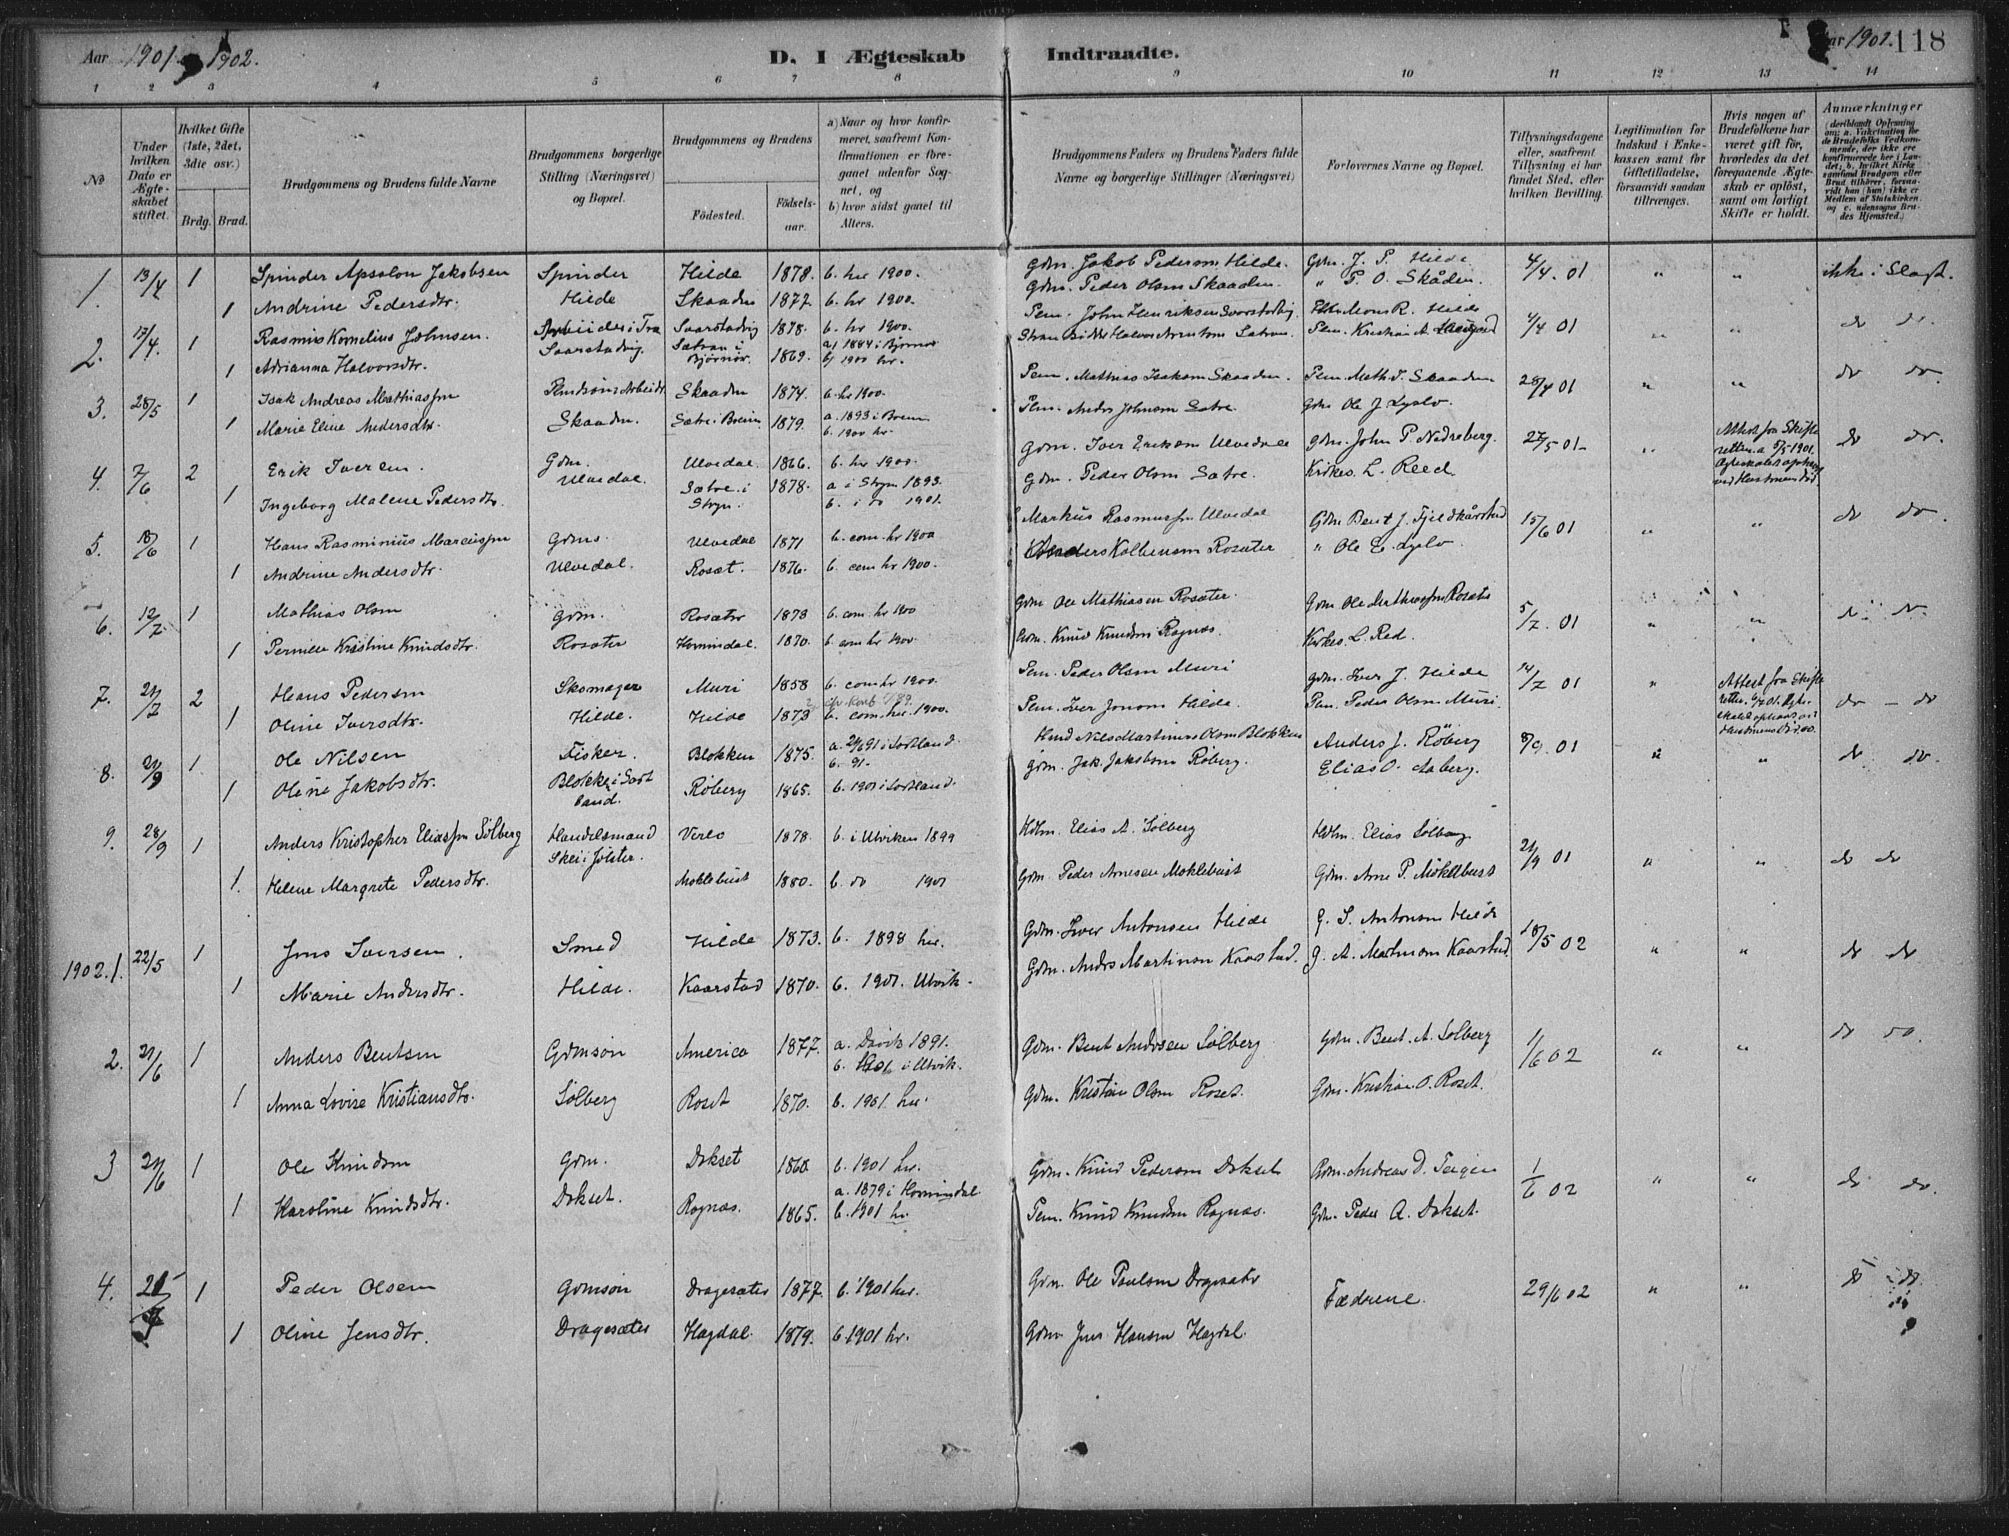 Aar 1901. 1902.
D. I Ægteskab Indtraadte.
Aar 1902. 118
1 2 3 4 5 6 7 8 9 10 11 12 13 14
No
Under hvilken Dato er Ægteskabet stiftet.
Hvilket Gifte (1ste, 2det, 3die osv.)
Brdg. Brud.
Brudgommens og Brudens fulde Navne
Brudgommens borgerlige Stilling (Næringsvei) og Bopæl.
Brudgommens og Brudens
Födested. Födselsaar.
a) Naar og hvor konfirmeret, saafremt Konfirmationen er foregaaet udenfor Sognet, og
b) hvor sidst gaaet til Alters.
Brudgommens Faders og Brudens Faders fulde Navne og borgerlige Stillinger (Næringsvei)
Forlovernes Navne og Bopæl.
Tillysningsdagene eller, saafremt Tillysning ei har fundet Sted, efter hvilken Bevilling.
Legitimation for Indskud i Enkekassen samt for Giftetilladelse, forsaavidt saadan tiltrænges.
Hvis nogen af Brudefolkene har været gift för, hvorledes da det foregaaende Ægteskab er oplöst, samt om lovligt Skifte er holdt.
Anmærkninger
(deriblandt Oplysning om: a. Vakcination for de Brudefolks Vedkommende, der ikke ere konfirmerede her i Landet; b. hvilket Kirkesamfund Brudgom eller Brud tilhörer, forsaavidt han (hun) ikke er Medlem af Statskirken, og c. udensogns Brudes Hjemsted.)
1. 13/4 1 Spinder Apsolon Jakobsen Spinder Hilde 1878. b. her 1900. Gdm. Jakob Pedersen Hilde. Gdm. J. P. Hilde 4/4. 01 " " ikke i Slægt.
1 Andrine Pedersdtr. Hilde Skaaden 1872. b. hr 1900. Gdm. Peder Olsen Skaaden. " P. O. Skåden.
2. 17/4. 1 Rasmus Kornelius Johnsen. Arbeider i Svarstadvig 1878. b. hr 1900. Pem. John Henriksen Svarstadvig Mons R. Hilde 4/4 01 " " do do.
1 Adrianna Halvorsdtr. Svarstadvig. Sætran i Bjørnør. 1869. a) 1884 i Bjørnør b) 1900 hr. Pem. Kristian A.
3. 28/5 1 Isak Andreas Mathiassen Arbeidr. Skaaden 1874. b. hr 1900. Pem. Mathias Isaksen Skaaden. Pem. Math. I. Skaaden 28/4 01 " " do do.
1 Marie Eline Andersdtr. Skaaden. Sætre i 1879. a. 1893 i b. 1900 hr. Pem. Anders Johnsen Sætre. Gdm Ole J. Lyslo.
4. 7/6 2 Erik Iversen. Gdm. Ulvedal. 1866. b. her 1900. Gdm. Iver Eriksen Ulvedal Gdm. John P. Nedreberg. 27/5 01 " Attest fra Skifteretten a 5/5 1901. do do.
1 Ingeborg Malene Pedersdtr. Ulvedal. Sætre i Stryn. 1878. a i Stryn 1893. b. i do 1901. Gdm. Peder Olsen Sætre. Kirkes. L. Reed
5. 18/6 1 Hans Rasminius Marcussen Gdms. Ulvedal 1871 b. com. hr 1900 Markus Rasmussen Ulvedal Gdm Bent J. Fjeldkårstad 15/6 01 " " do do.
1 Andrine Andersdtr. Ulvedal. Rosæt. 1876. b. com hr 1900. Anders Kolbensen Rosæter " Ole E. Lyslo.
6. 12/7 1 Mathias Olsen Gdm. Rosæter 1873 b. com. hr 1900 Gdm Ole Mathiasen Rosæter. Gdm Ole Mathiassen Rosæter 5/7. 01 " " do do.
1 Pernille Kristine Knudsdtr. Rosæter Hornindal. 1870. b. com hr 1900. Gdm. Knud Knudsen Rognæs. Kirkes. L. Red.
7. 21/7 2 Hans Pedersen Skomager Muri 1858 b. com hr 1900. Pem. Peder Olsen Muri Gdm. Iver J. Hilde 14/7 01 " Attest fra Skifteretten do - do
1 Oline Iversdtr. Hilde. Hilde 1873 b. com. her. 1900. Pem. Iver Jonsen Hilde. Pem. Peder Olsen Muri.
8. 21/9 1. Ole Nilsen Fisker. Blokken 1875. a. 21/6 91 i Sortland. b. 91. Nils Martinus Olsen Blokken Anders J. Röberg 8/9 01 " " do do.
1 Oline Jakobsdtr. Blokken i Sortland. Röberg 1865. b. 1901 i Sortland. Gdm. Jak. Jakobsen Röberg. Elias O. Aaberg.
9. 28/9 1 Anders Kristopher Eliassen Sølberg Handelsmand Verlo 1878. b. i Utviken 1899 Hdlm. Elias A. Sølberg Hdlm. Elias Solberg 21/9 01 " " do do
1. Helene Margrete Pedersdtr. Skei i Jølster. Moklebust 1880. b. do 1901 Gdm. Peder Arnesen Moklebust Gdm. Arne P. Möklebust
1902. 1. 22/5 1 Jens Iversen. Smed Hilde 1873. b. 1898 her. Gdm. Iver Antonsen Hilde G. I. Antonsen Hilde 18/5 02 " " do do
1 Marie Andersdtr. Hilde. Kaarstad 1870. b. 1901. Utvik. Gdm. Anders Martinsen Kaarstad. G. A. Martinsen Kaarstad.
2. 21/6 1 Anders Bentsen Gdmsøn America 1877. a. Davik 1891. b. i Utvik. Gdm. Bent Andersen Sølberg Gdm. Bent. A. Solberg 1/6 02 " " do do.
1 Anna Lovise Kristiansdtr. Sølberg Roset 1870. b. 1901 her. Gdm. Kristian Olsen Roset. Gdm. Kristian O. Roset.
3 21/6 1 Ole Knudsen Gdm. Dokset 1860. b. 1901 hr. Gdm. Knud Pedersen Dokset Gdm. Andreas D. Teigen 1/6 02 " " do do.
1 Karoline Knudsdtr. Dokset. Rognæs. 1865. a. 1879 i Hornindal b. 1901 hr. Pem. Knud Knudsen Rognæs. Gdm. Peder A. Dokset.
4. 1 Peder Olsen Gdmsøn Dragesæter 1877. b. 1901 her. Gdm. Ole Paulsen Dragesæter Fædrene. 29/6 02 " " do do.
1 Oline Jensdtr. Dragesæter Hagdal. 1879. b. 1901 hr. Gdm Jens Hansen Hagdal.